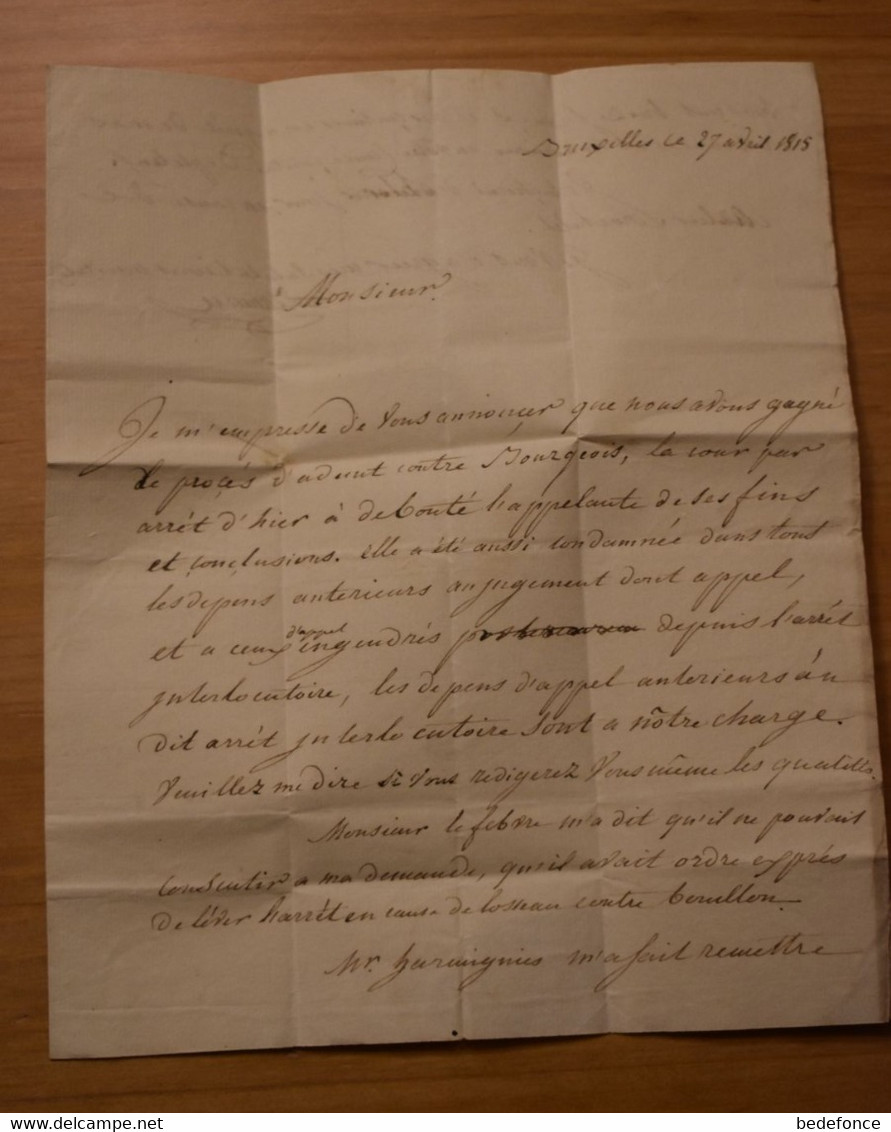 Bruxelles le 27 avril 1815
Monsieur.
Je m'empresse de vous annoncer que nous avons gagné
le procés d'adent contre Bourgeois, la cour par
arrét d'hier à debouté l'appelante de ses fins
et conclusions. elle a été aussi condamnée dans tous
les depens anterieurs au jugement dont appel,
et a ceux d'appel engendrés depuis l'arrét
jnterlocutoire, les depens d'appel anterieurs au
dit arrét jnterlocutoire sont a nôtre charge.
Veuillez me dire si vous redigerez vous même les qualités.
Monsieur lefebvre m'a dit qu'il ne pouvait
consentir a ma demande, qu'il avait ordre exprés
de léver l'arrét en cause de losseau contre bouillon.
Mr. harmignies m'a fait remettre
delcampe.net
bedefonce